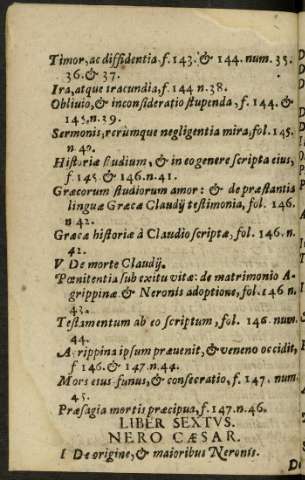 Timor, ac diffidentia, f. 143. & 144. num. 35.
36. & 37.
Ira, atque iracundia, f. 144 n. 38.
Obliuio, & inconsideratio stupenda, f. 144. &
145, n. 39.
Sermonis, rerumque negligentia mira, fol. 145.
n. 40.
Historiæ studium, & in eo genere scripta eius,
f. 145. & 146. n. 41.
Græcorum studiorum amor: & de præstantia
linguæ Græcæ Claudij testimonia, fol. 146.
n 42.
Græcæ historiæ à Claudio scriptæ, fol. 146. n.
42.
V De morte Claudij.
Pœnitentia sub exitu vitæ: de matrimonio A-
grippinæ & Neronis adoptione, fol. 146 n.
43.
Testamentum ab eo scriptum, fol. 146 num.
44.
Agrippina ipsum præuenit, & veneno occidit,
f 146. & 147. n. 44.
Mors eius funus, & consecratio, f. 147. num.
45.
Præsagia mortis præcipua, f. 147. n. 46.
LIBER SEXTVS.
NERO CÆSAR.
I De origine, & maioribus Neronis.